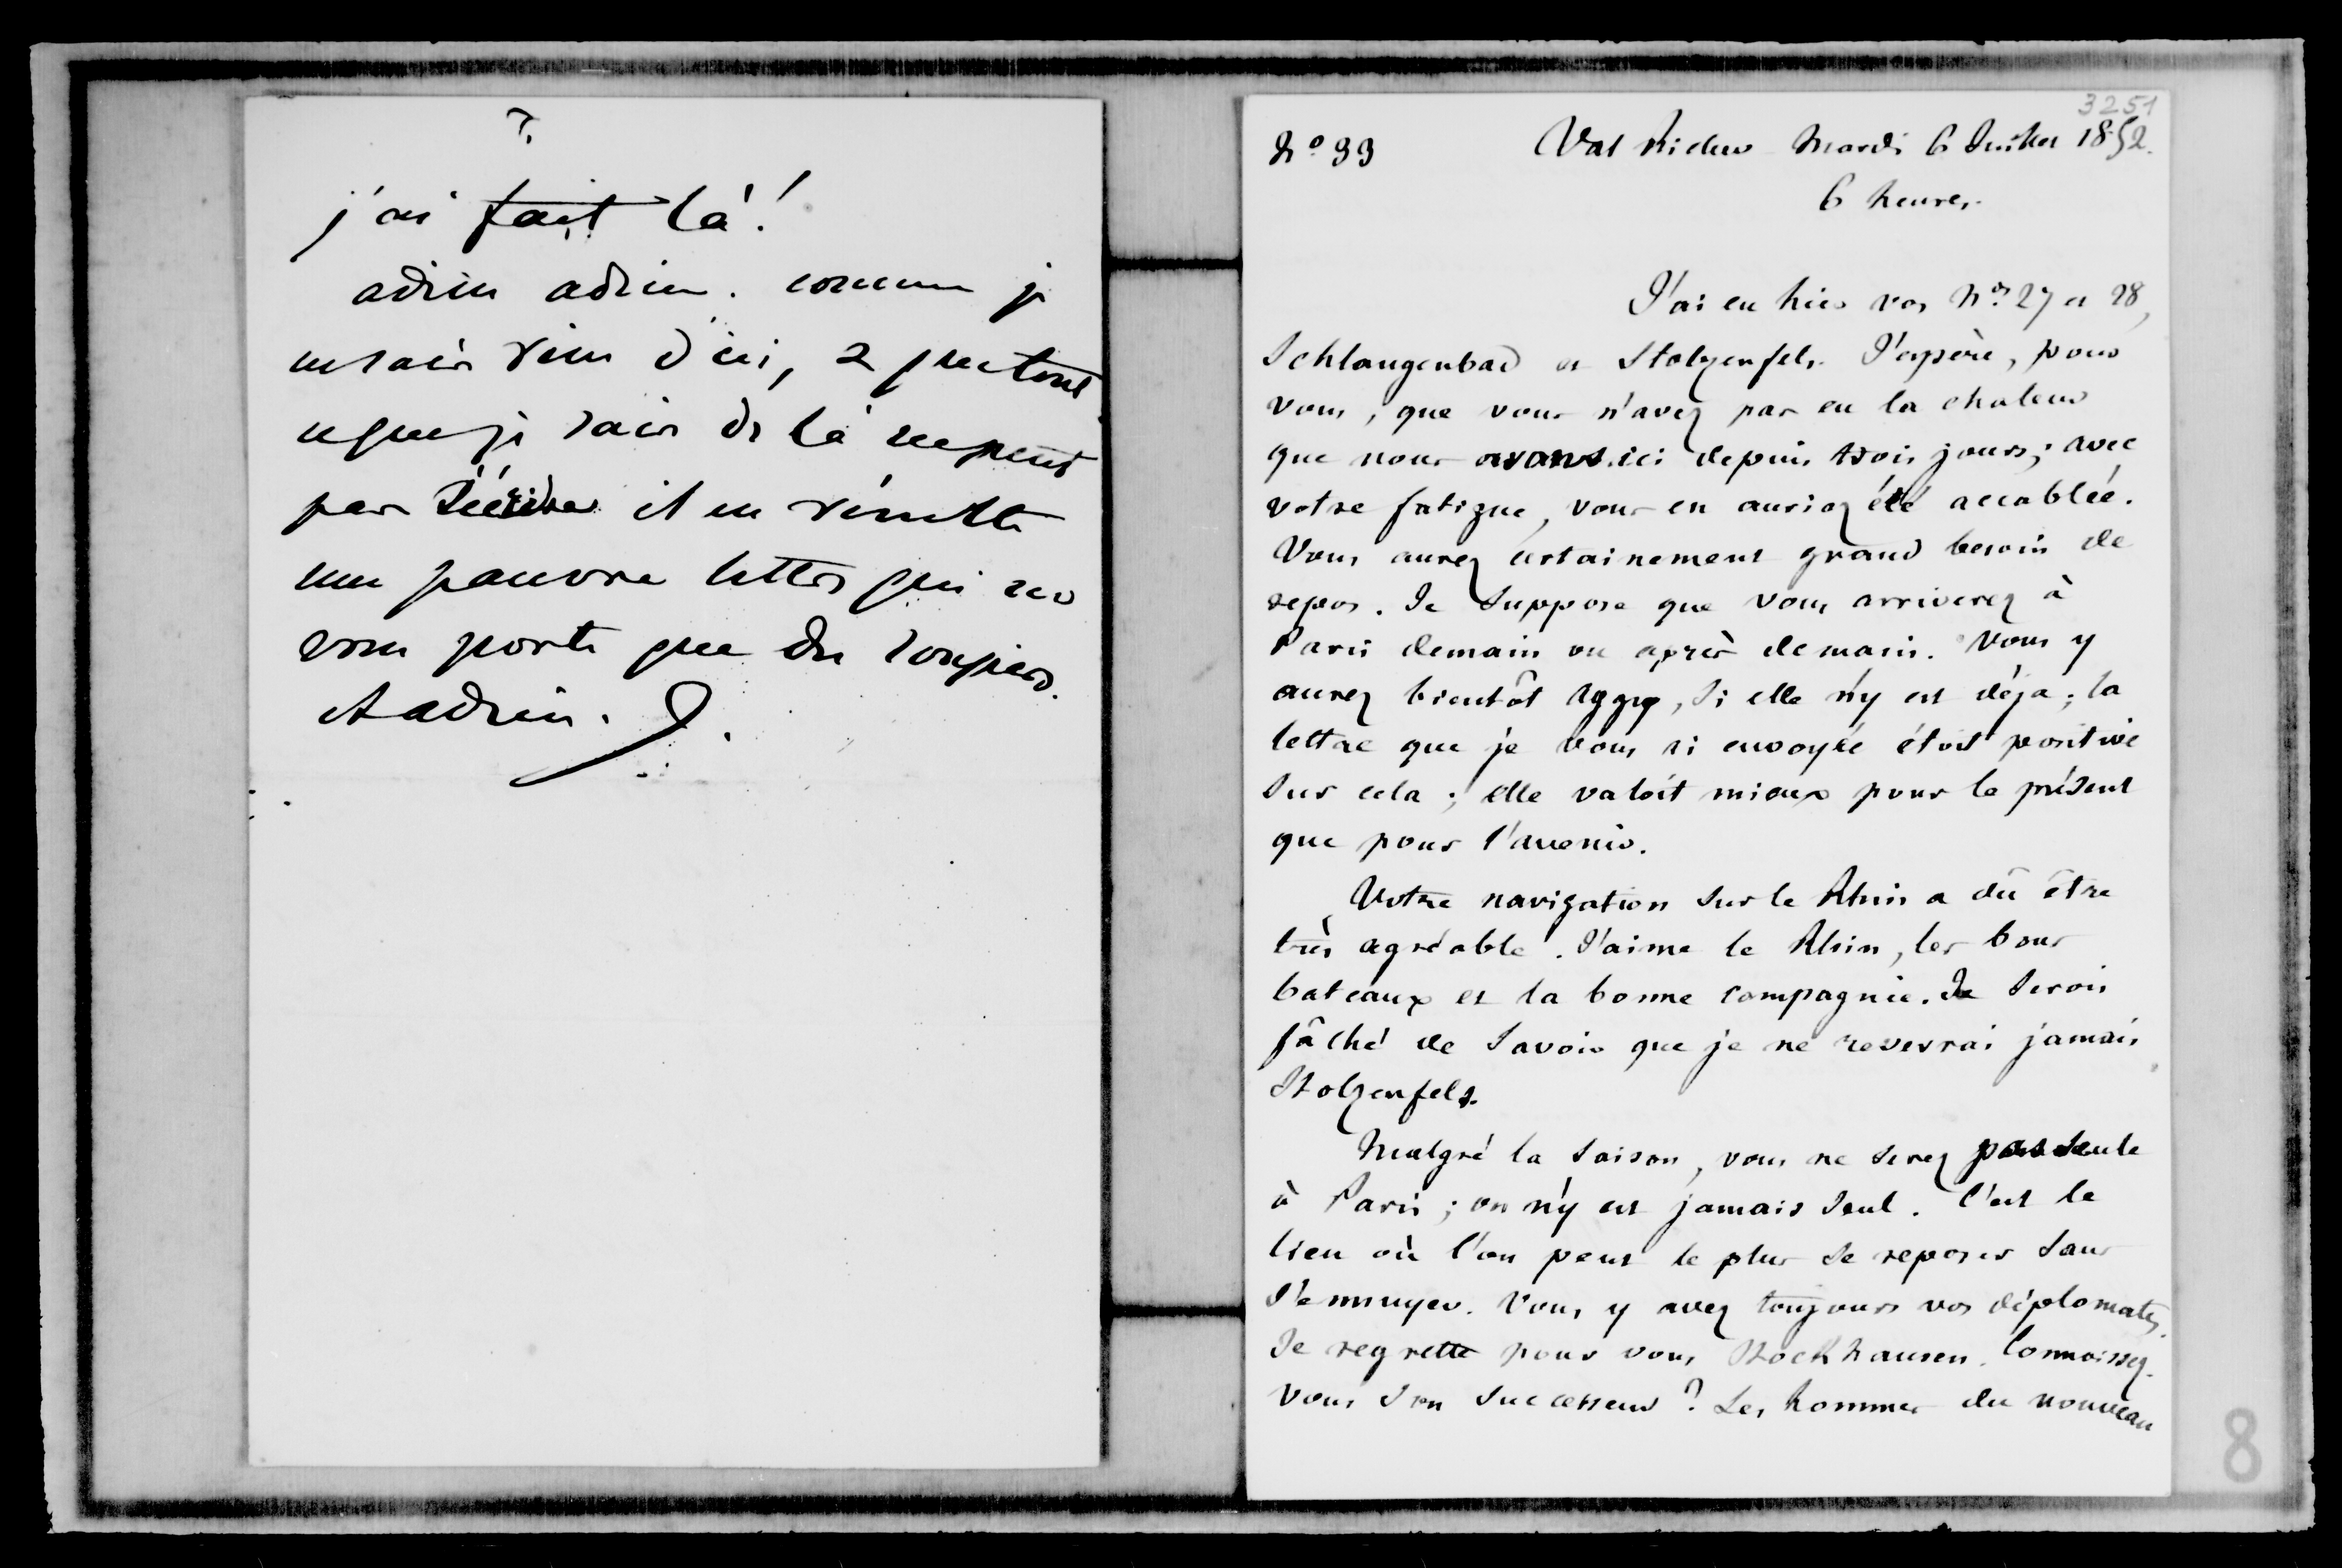 7.
j'ai fait là !
adieu adieu. comme je
ne sais rien d'ici, & que tout
ce que je sais de là ne peut
pas s'écrire il en résulte
une pauvre lettre qui ne
vous porte que du soupirs.
Adieu.
3251
No 33 Val Richer Mardi 6 Juillet 1852.
6 heures.
J'ai eu hier vos Nos 27 et 28,
Schlangenbad et Stolzenfels. J'espère, pour
vous, que vous n'avez pas eu la chaleur
que nous avons ici depuis trois jours ; avec
votre fatigue, vous en auriez été accablée.
Vous aurez certainement grand besoin de
repos. Je suppose que vous arriverez à
Paris demain ou après demain. Vous y
aurez bientôt Aggy, si elle n'y est déja ; la
lettre que je vous ai envoyée étoit positive
sur cela ; elle valoit mieux pour le présent
que pour l'avenir.
Votre navigation sur le Rhin a dû être
très agréable. J'aime le Rhin, les bons
bateaux et la bonne compagnie. Je serois
fâché de savoir que je ne reverrai jamais
Stolzenfels.
Malgré la saison, vous ne serez pas seule
à Paris ; on n'y est jamais seul. C'est le
lieu où l'on peut le plus se reposer sans
s'ennuyer. Vous y avez toujours vos diplomates.
Je regrette pour vous Stockhausen. Connoissez-
vous son successeur ? Les hommes du nouveau
8